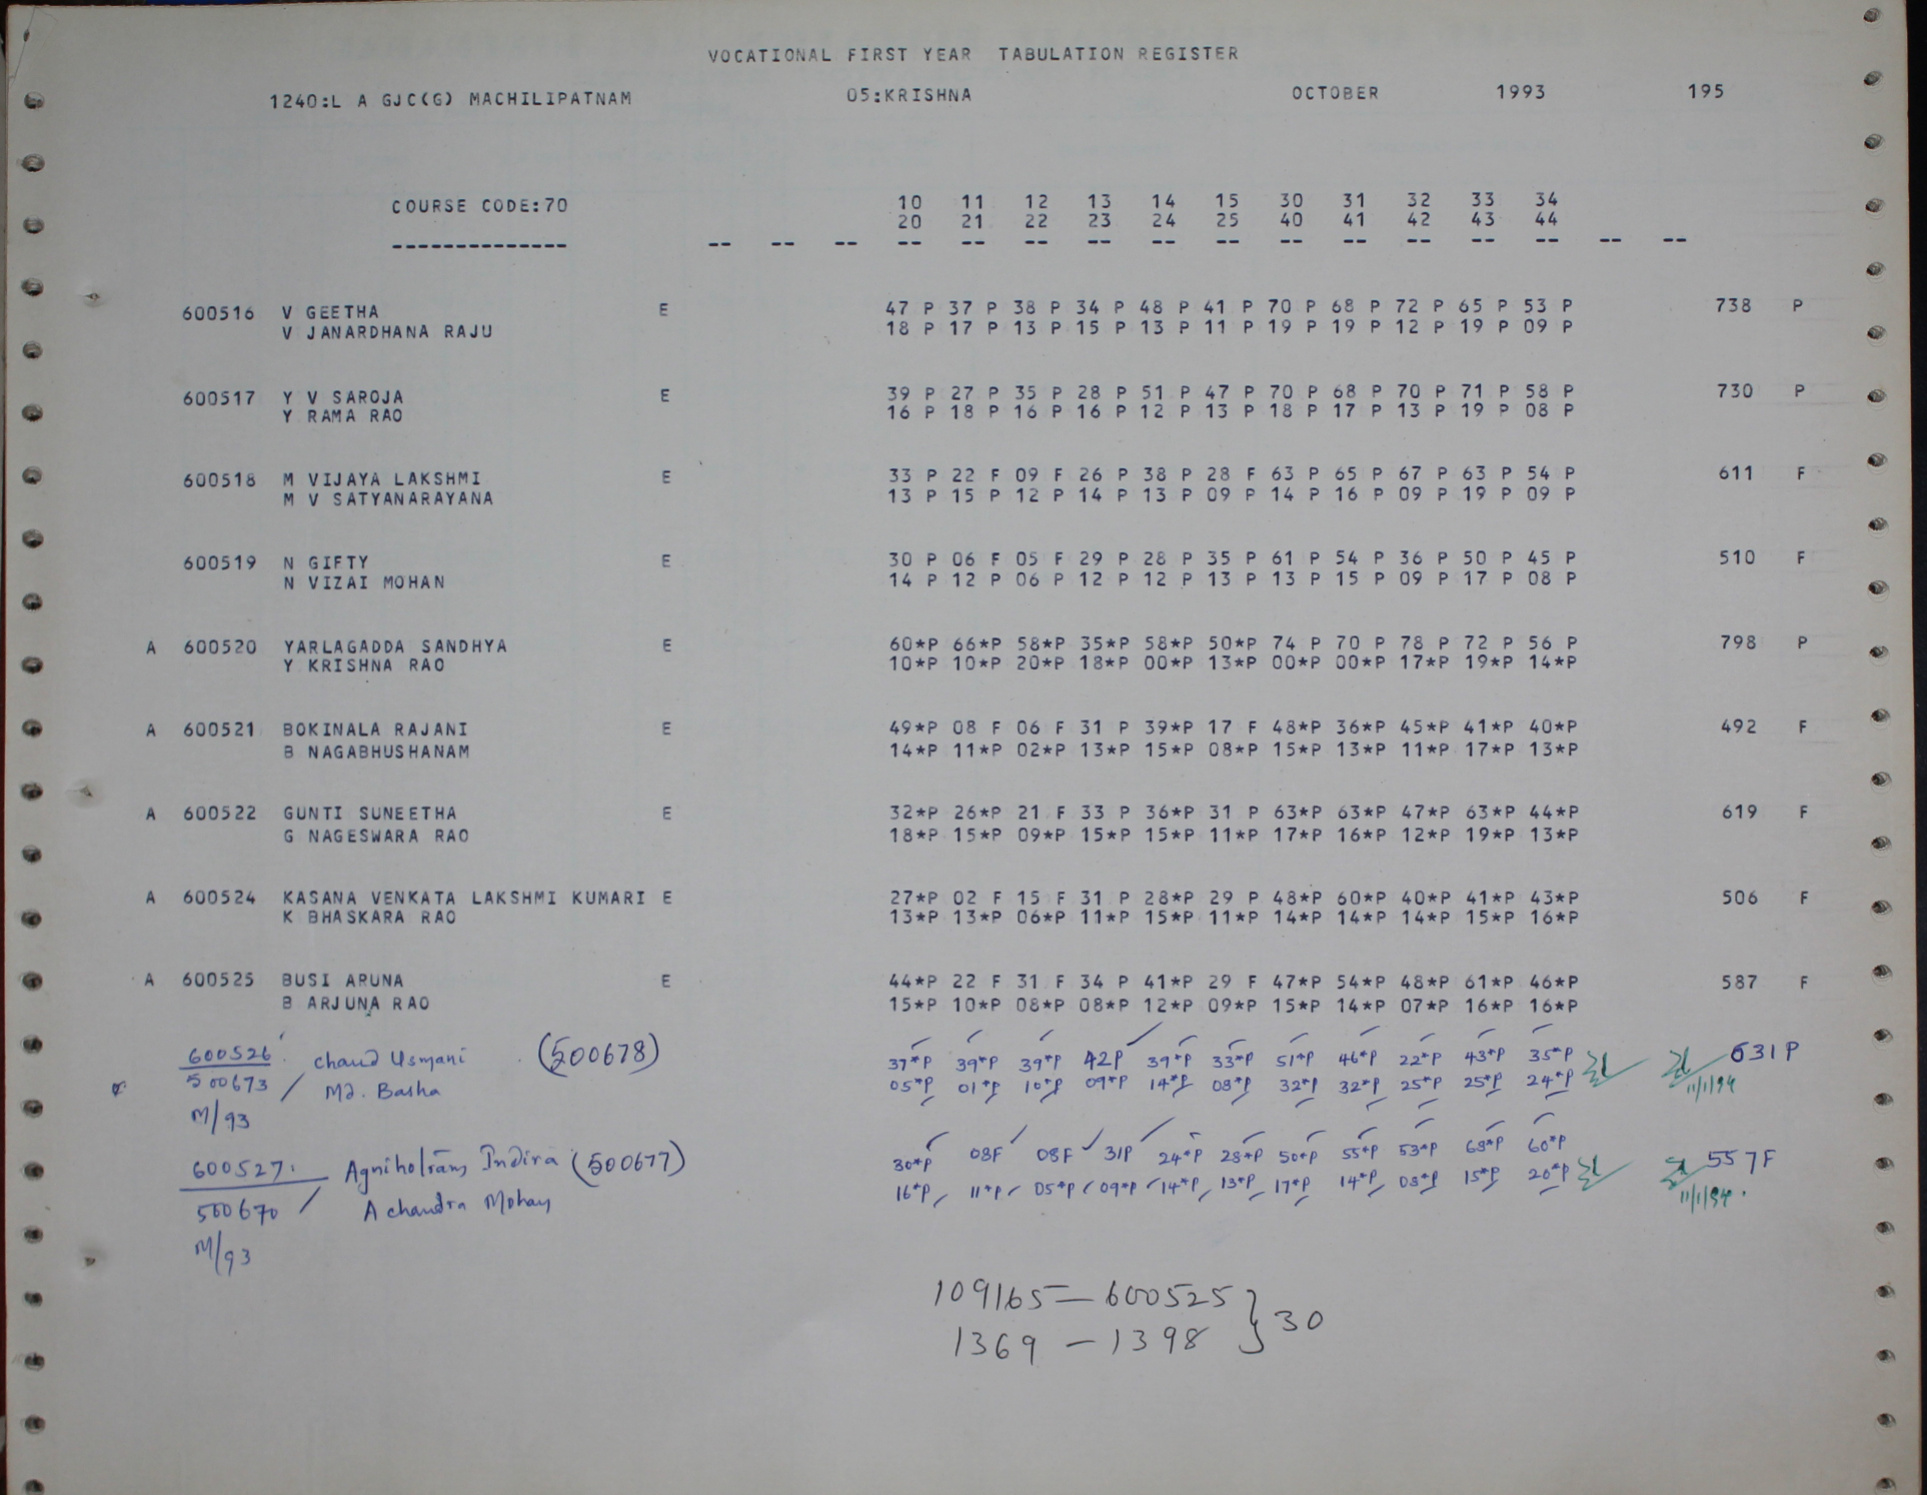 VOCATIONAL FIRST YEAR TABULATION REGISTER
1240:L A GJC(G) MACHILIPATNAM 05:KRISHNA OCTOBER 1993 195
COURSE CODE:70 10 11 12 13 14 15 30 31 32 33 34
20 21 22 23 24 25 40 41 42 43 44
-------------- -- -- -- -- -- -- -- -- -- -- -- -- -- -- -- --
600516 V GEETHA E 47 P 37 P 38 P 34 P 48 P 41 P 70 P 68 P 72 P 65 P 53 P 738 P
V JANARDHANA RAJU 18 P 17 P 13 P 15 P 13 P 11 P 19 P 19 P 12 P 19 P 09 P
600517 Y V SAROJA E 39 P 27 P 35 P 28 P 51 P 47 P 70 P 68 P 70 P 71 P 58 P 730 P
Y RAMA RAO 16 P 18 P 16 P 16 P 12 P 13 P 18 P 17 P 13 P 19 P 08 P
600518 M VIJAYA LAKSHMI E 33 P 22 F 09 F 26 P 38 P 28 F 63 P 65 P 67 P 63 P 54 P 611 F
M V SATYANARAYANA 13 P 15 P 12 P 14 P 13 P 09 P 14 P 16 P 09 P 19 P 09 P
600519 N GIFTY E 30 P 06 F 05 F 29 P 28 P 35 P 61 P 54 P 36 P 50 P 45 P 510 F
N VIZAI MOHAN 14 P 12 P 06 P 12 P 12 P 13 P 13 P 15 P 09 P 17 P 08 P
A 600520 YARLAGADDA SANDHYA E 60*P 66*P 58*P 35*P 58*P 50*P 74 P 70 P 78 P 72 P 56 P 798 P
Y KRISHNA RAO 10*P 10*P 20*P 18*P 00*P 13*P 00*P 00*P 17*P 19*P 14*P
A 600521 BOKINALA RAJANI E 49*P 08 F 06 F 31 P 39*P 17 F 48*P 36*P 45*P 41*P 40*P 492 F
B NAGABHUSHANAM 14*P 11*P 02*P 13*P 15*P 08*P 15*P 13*P 11*P 17*P 13*P
A 600522 GUNTI SUNEETHA E 32*P 26*P 21 F 33 P 36*P 31 P 63*P 63*P 47*P 63*P 44*P 619 F
G NAGESWARA RAO 18*P 15*P 09*P 15*P 15*P 11*P 17*P 16*P 12*P 19*P 13*P
A 600524 KASANA VENKATA LAKSHMI KUMARI E 27*P 02 F 15 F 31 P 28*P 29 P 48*P 60*P 40*P 41*P 43*P 506 F
K BHASKARA RAO 13*P 13*P 06*P 11*P 15*P 11*P 14*P 14*P 14*P 15*P 16*P
A 600525 BUSI ARUNA E 44*P 22 F 31 F 34 P 41*P 29 F 47*P 54*P 48*P 61*P 46*P 587 F
B ARJUNA RAO 15*P 10*P 08*P 08*P 12*P 09*P 15*P 14*P 07*P 16*P 16*P
600526 chand Usmani (500678) 37*P 39*P 39*P 42P 39*P 33*P 51*P 46*P 22*P 43*P 35*P 631 P
500673 / Md. Basha 05*P 01*P 10*P 09*P 14*P 08*P 32*P 32*P 25*P 25*P 24*P 11/1/94
M/93
600527. Indira (500677) 30*P 08F 08F 31P 24*P 28*P 50*P 55*P 53*P 68*P 60*P 557F
500670 / A chandra Mohan 16*P 11*P 05*P 09*P 14*P 13*P 17*P 14*P 08*P 15*P 20*P 11/1/94.
M/93
109165 — 600525 } 30
1369 — 1398